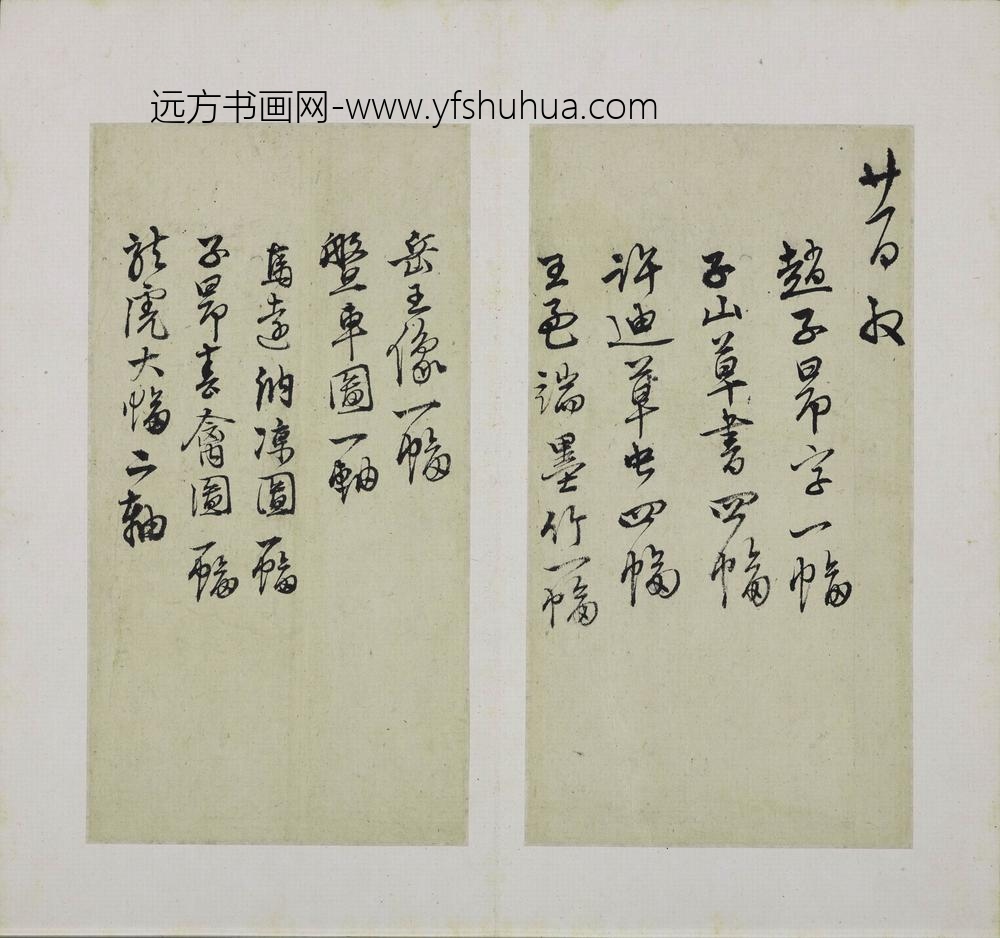 远方书画网-www.yfshuhua.com
廿一日收
趙子昂字一幅
子山草書四幅
許迪草虫四幅
王孟端墨竹一幅
岳王像一幅
盤車圖一軸
馬遠納凉圖一幅
子昂春禽圖一幅
龍虎大幅二軸